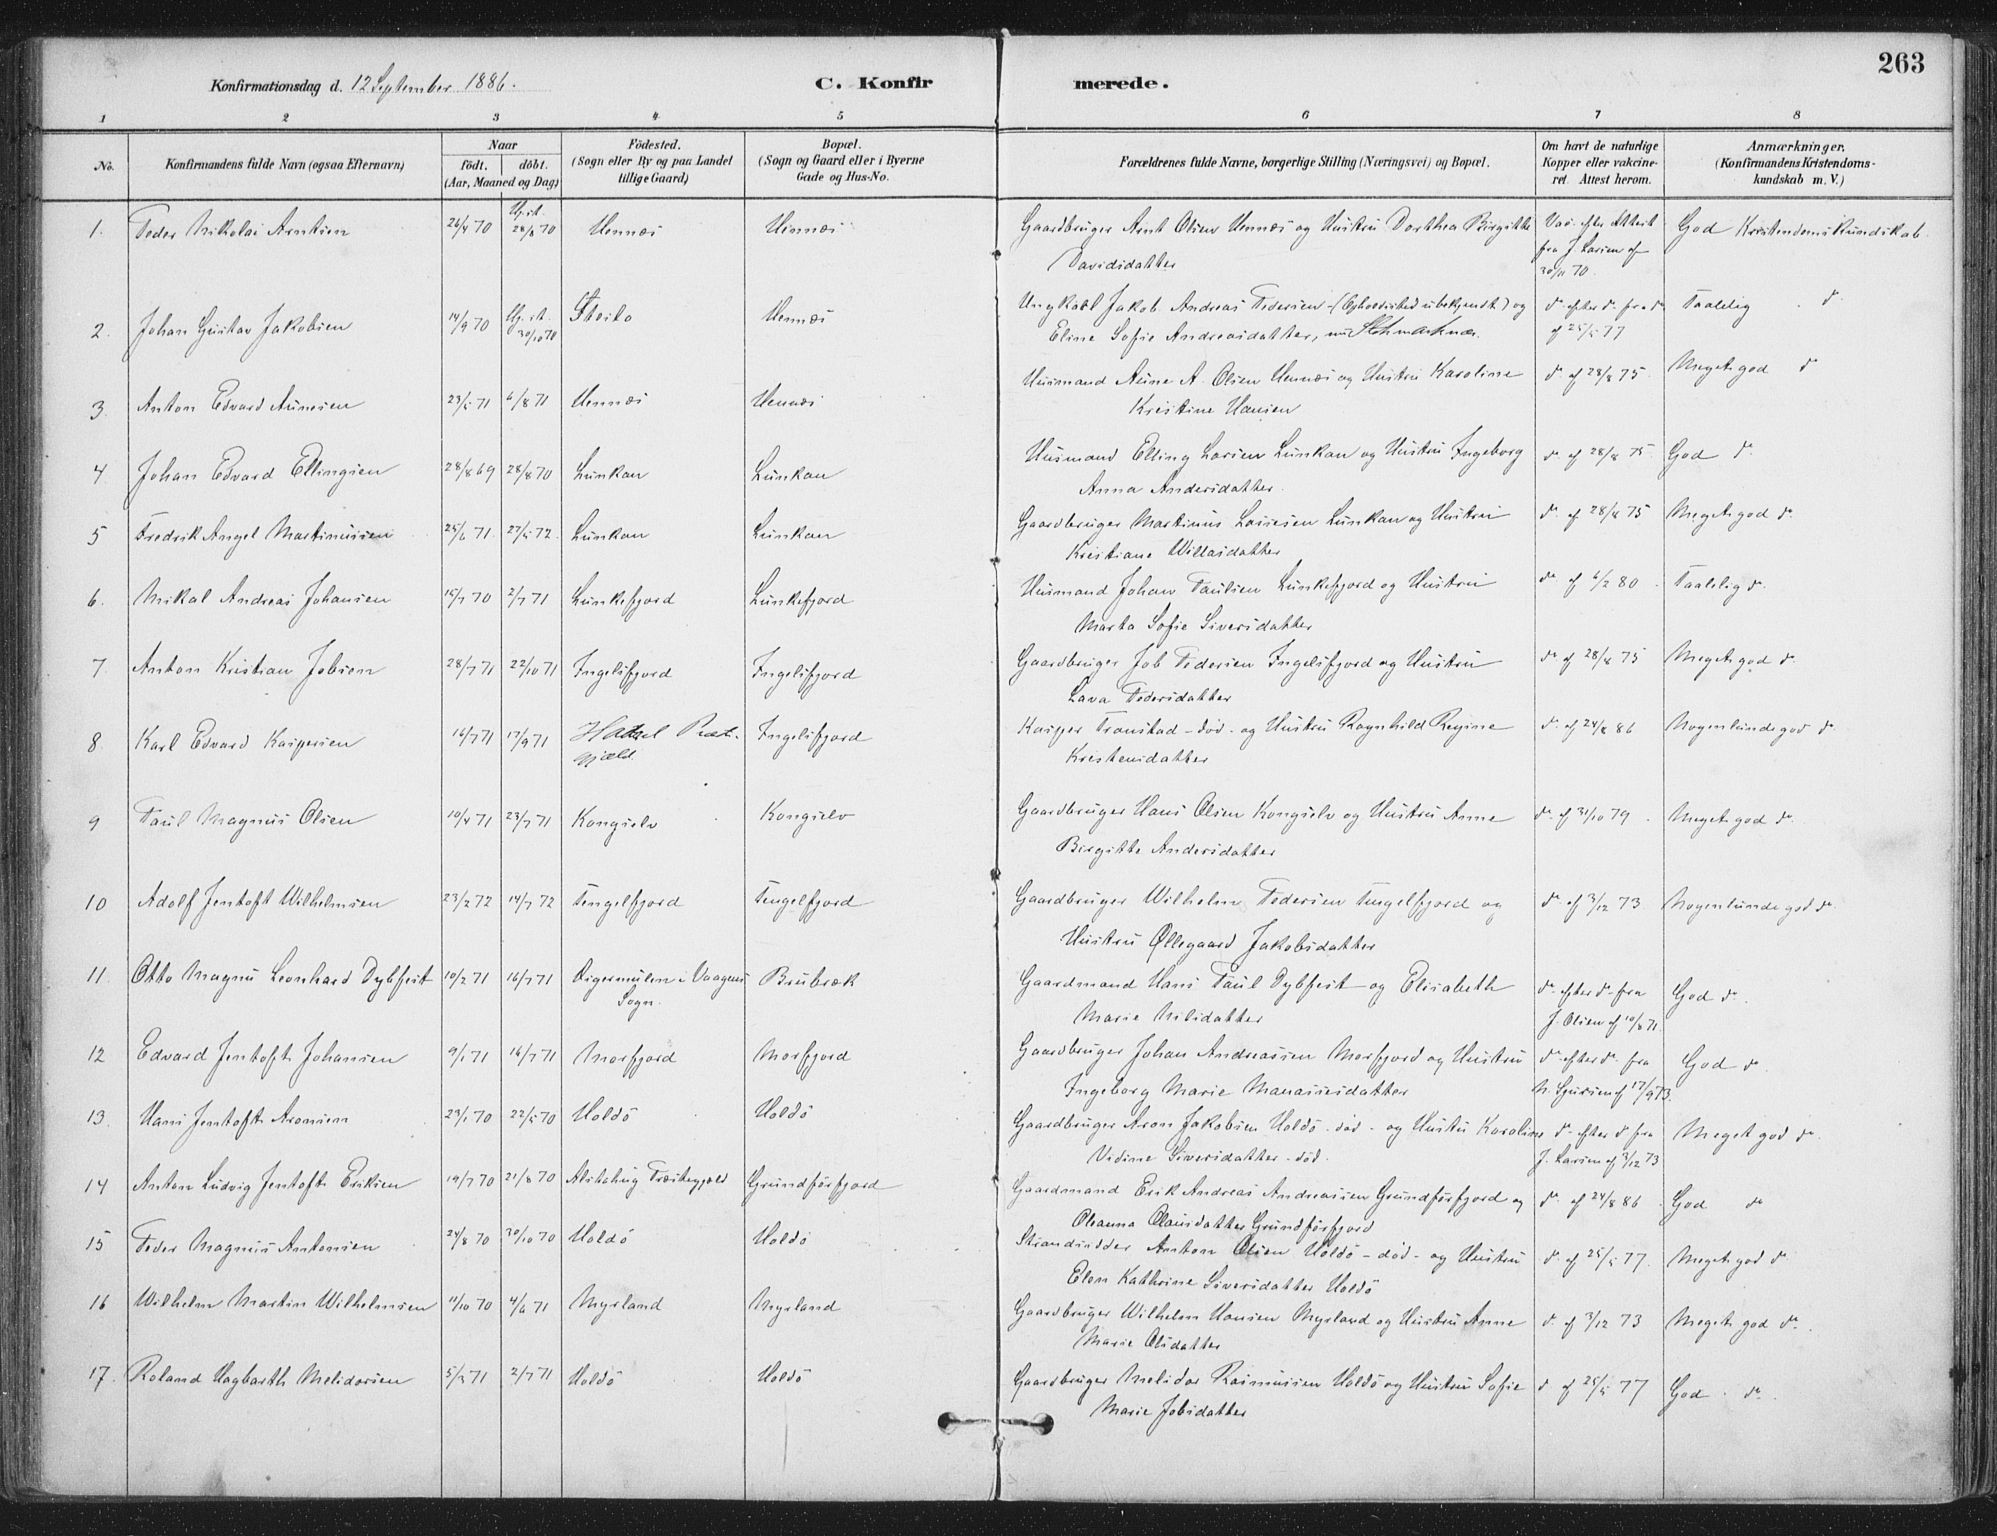 263
Konfirmationsdag d. 12 September 1886.
C. Konfirmerede.
1 2 3 4 5 6 7 8
No. Konfirmandens fulde Navn (ogsaa Efternavn) Naar födt. döbt. (Aar, Maaned og Dag) Födested. (Sogn eller By og paa Landet tillige Gaard) Bopæl. (Sogn og Gaard eller i Byerne Gade og Hus-No. Forældrenes fulde Navne, borgerlige Stilling (Næringsvei) og Bopæl. Om havt de naturlige Kopper eller vakcineret. Attest herom. Anmærkninger. (Konfirmandens Kristendomskundskab m. V.)
1. Peder Nikolai Arntsen 26/4 70 Hj. st. 28/8 70 Hennæs Hennæs Gaardbruger Arnt Olsen Hennæs og Hustru Dorthea Birgitte Vac. efter Attest God Kristendomskundskab.
Davidsdatter fra J. Larsen af 30/11 70.
2. Johan Gustav Jakobsen 14/9 70 Hj. st. 30/10 70 Steilo Hennæs Ungkarl Jakob Andreas Pedersen (Opholdssted ubekjendt) og do efter do fra do Taalelig do
Eline Sofie Andreasdatter, nu Stokmarknæs. af 25/5 77
3. Anton Edvard Aunesen 23/5 71 6/8 71 Hennæs Hennæs Husmand Aune A. Olsen Hennæs og Hustru Karoline do af 28/8 75. Meget god do
Kristine Hansen
4 Johan Edvard Ellingsen 28/8 69 28/8 70 Lunkan Lunkan Husmand Elling Larsen Lunkan og Hustru Ingeborg do af 28/8 75 God do
Anna Andersdatter.
5 Fredrik Angel Martinussen 25/6 71. 27/5 72. Lunkan Lunkan Gaardbruger Martinus Lassesen Lunkan og Hustru do af 28/8 75 Meget god do
Kristiane Willasdatter
6. Mikal Andreas Johansen 15/7 70 2/7 71 Lunkefjord Lunkefjord Husmand Johan Paulsen Lunkefjord og Hustru do af 6/2 80 Taalelig do
Marta Sofie Siversdatter
7. Anton Kristian Jobsen 28/7 71 22/10 71 Ingelsfjord Ingelsfjord Gaardbruger Job Pedersen Ingelsfjord og Hustru do af 28/8 75 Meget god do
Lava Pedersdatter
8. Karl Edvard Kaspersen 16/7 71 17/9 71 Hadsel Præstegjæld. Ingelsfjord Kasper Transtad - død - og Hustru Ragnhild Regine do af 24/8 86 Nogenlunde god do
Kristensdatter
9 Paul Magnus Olsen 10/4 71 23/7 71 Kongselv Kongselv Gaardbruger Hans Olsen Kongselv og Hustru Anne do af 31/10 79 Meget god do
Birgitte Andersdatter
10 Adolf Jentoft Wilhelmsen 23/2 72 14/7 72 Tengelfjord Tengelfjord Gaardbruger Wilhelm Pedersen Tengelfjord og do af 3/12 73 Nogenlunde god do
Hustru Øllegaard Jakobsdatter
11. Otto Magnus Leonhard Dybfest 10/2 71 16/7 71 Digermulen i Vaagens Sogn. Brubræk Gaardmand Hans Paul Dybfest og Elisabeth do efter do fra God do
Marie Nilsdatter J. Olsen af 10/8 71
12 Edvard Jentoft Johansen 9/1 71 16/7 71 Morfjord Morfjord Gaardbruger Johan Andreassen Morfjord og Hustru do efter do fra God do
Ingeborg Marie Manassesdatter N. Sjursen af 17/9 73.
13. Hans Jentoft Aronsen 23/1 70 22/5 70 Holdö Holdö Gaardbruger Aron Jakobsen Holdö - død - og Hustru Karoline do efter do fra Meget god do
Vidine Siversdatter - død. J. Larsen af 3/12 73
14 Anton Ludvig Jentoft Eriksen 19/7 70 21/8 70 Alstahug Præstegjæld Grundförfjord Gaardmand Erik Andreas Andreassen Grundförfjord og do af 24/8 86 God do
Oleanna Olausdatter Grundförfjord
15 Peder Magnus Antonsen 24/8 70 30/10 70 Holdö Holdö Strandsidder Anton Olsen Holdö - død - og Hustru do af 25/5 77. Meget god do
Elen Kathrine Siversdatter Holdö
16 Wilhelm Martin Wilhelmsen 11/10 70 4/6 71 Myrland Myrland Gaardbruger Wilhelm Hansen Myrland og Hustru Anne do af 3/12 73 Meget god do
Marie Olsdatter
17. Roland Hagbarth Melidorsen 5/2 71 2/7 71 Holdö Holdö Gaardbruger Melidor Rasmussen Holdö og Hustru Sofie do af 25/5 77 God do
Marie Jobsdatter